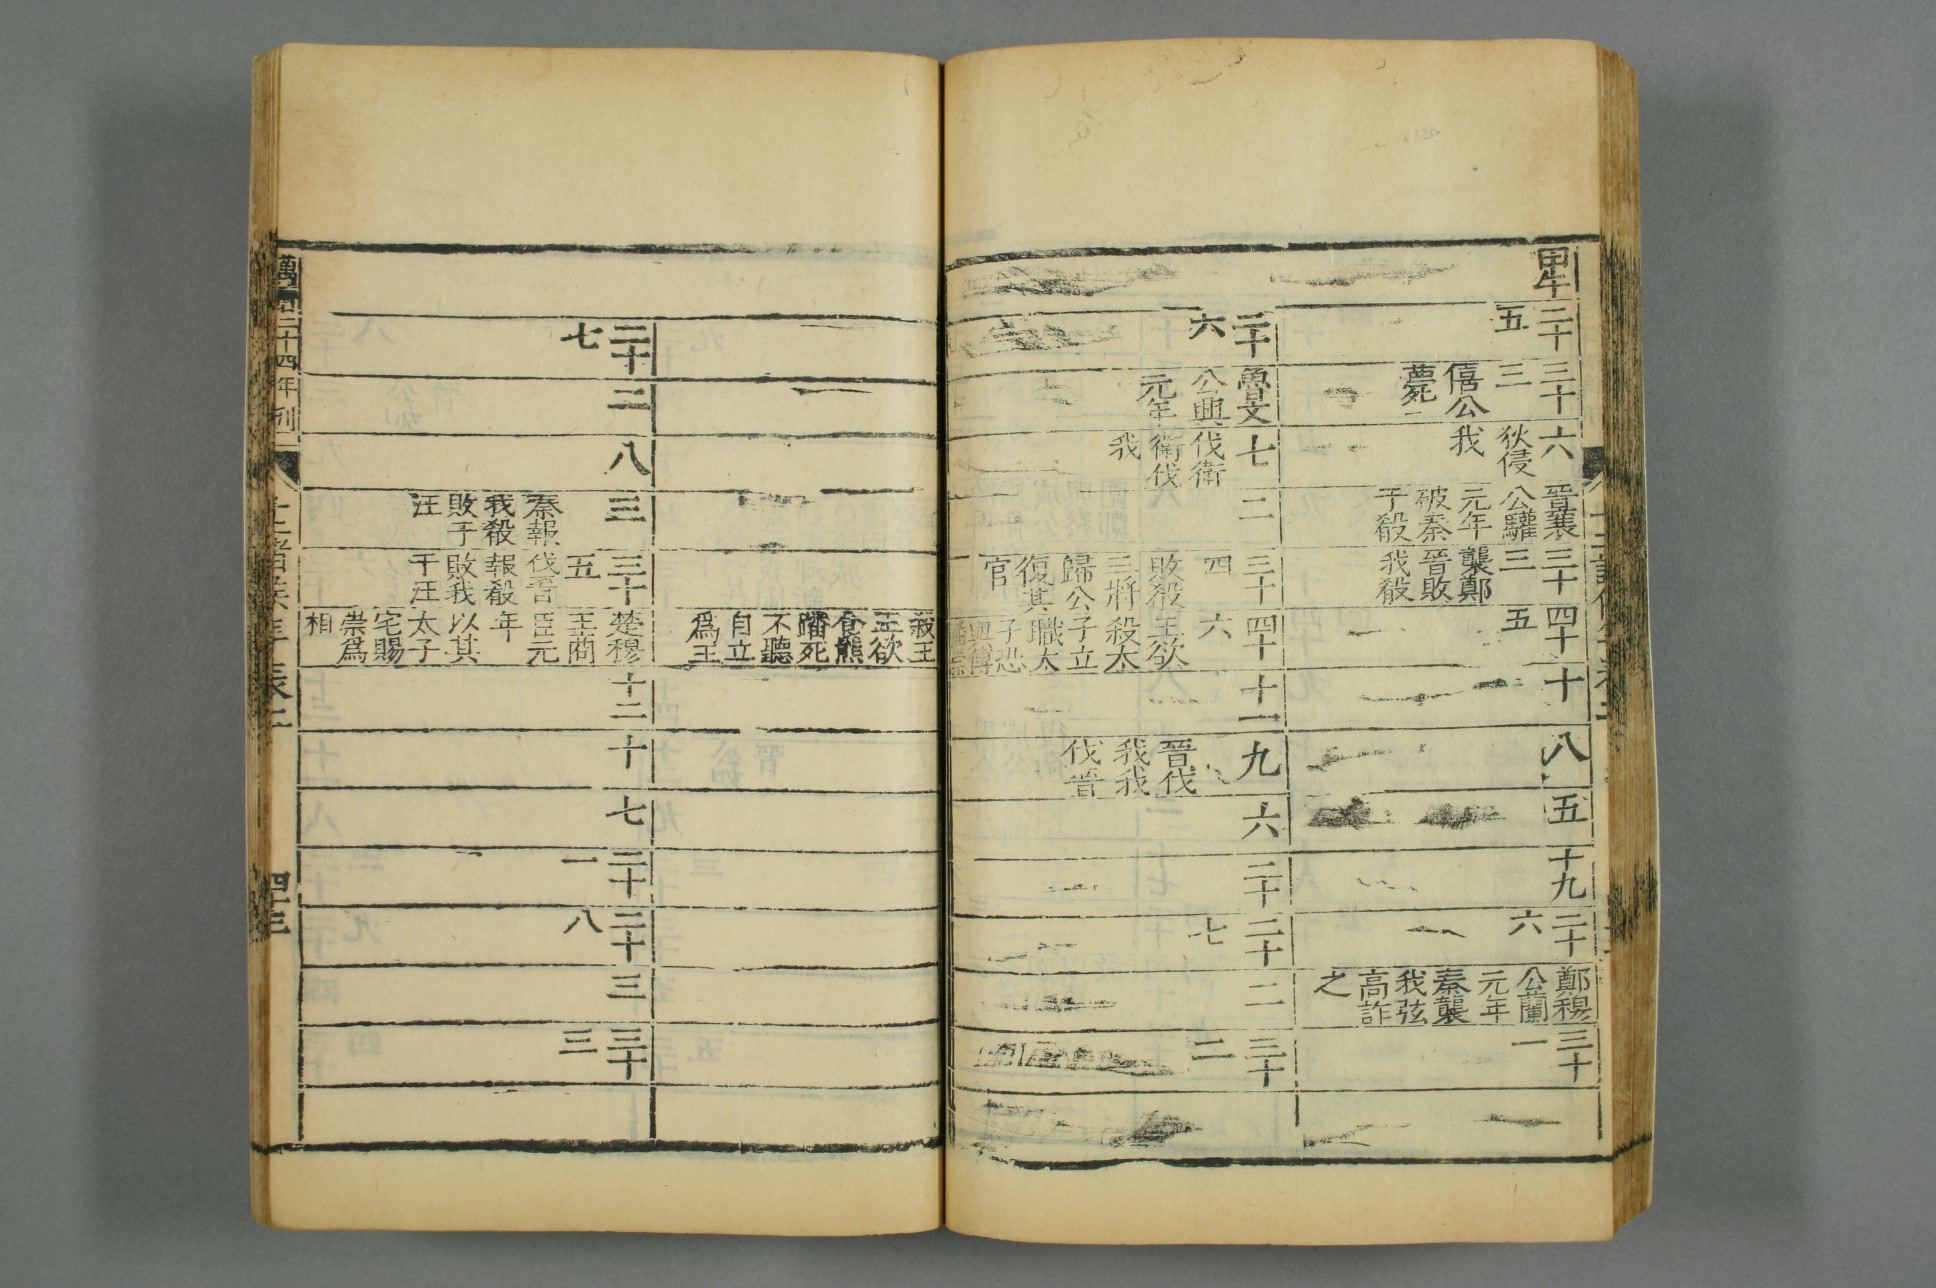 甲午
二十五
三十三僖公薨死
六狄侵我
晉襄公驩元年破秦于殽
三十三襲鄭晉敗我殽
四十五
十
八
五
十九
二十六
鄭穆公蘭元年秦襲我弦高詐之
三十一
二十六
魯文公興元年
七伐衛衛伐我
二
三十四敗殽三將歸公復其官
四十六王欲殺太子立職太子恐與傅潘崇
十一
九晉伐我我伐晉
六
二十
二十七
二
三十二
殺王王欲食熊蹯死不聽自立爲王
二十七
二
八
三秦報我殽敗于汪
三十五伐晉報殽敗我于汪
楚穆王商臣元年以其太子宅賜崇爲相
十二
十
七
二十一
二十八
三
三十三
二十四年刊
十二諸侯年表二
四十三